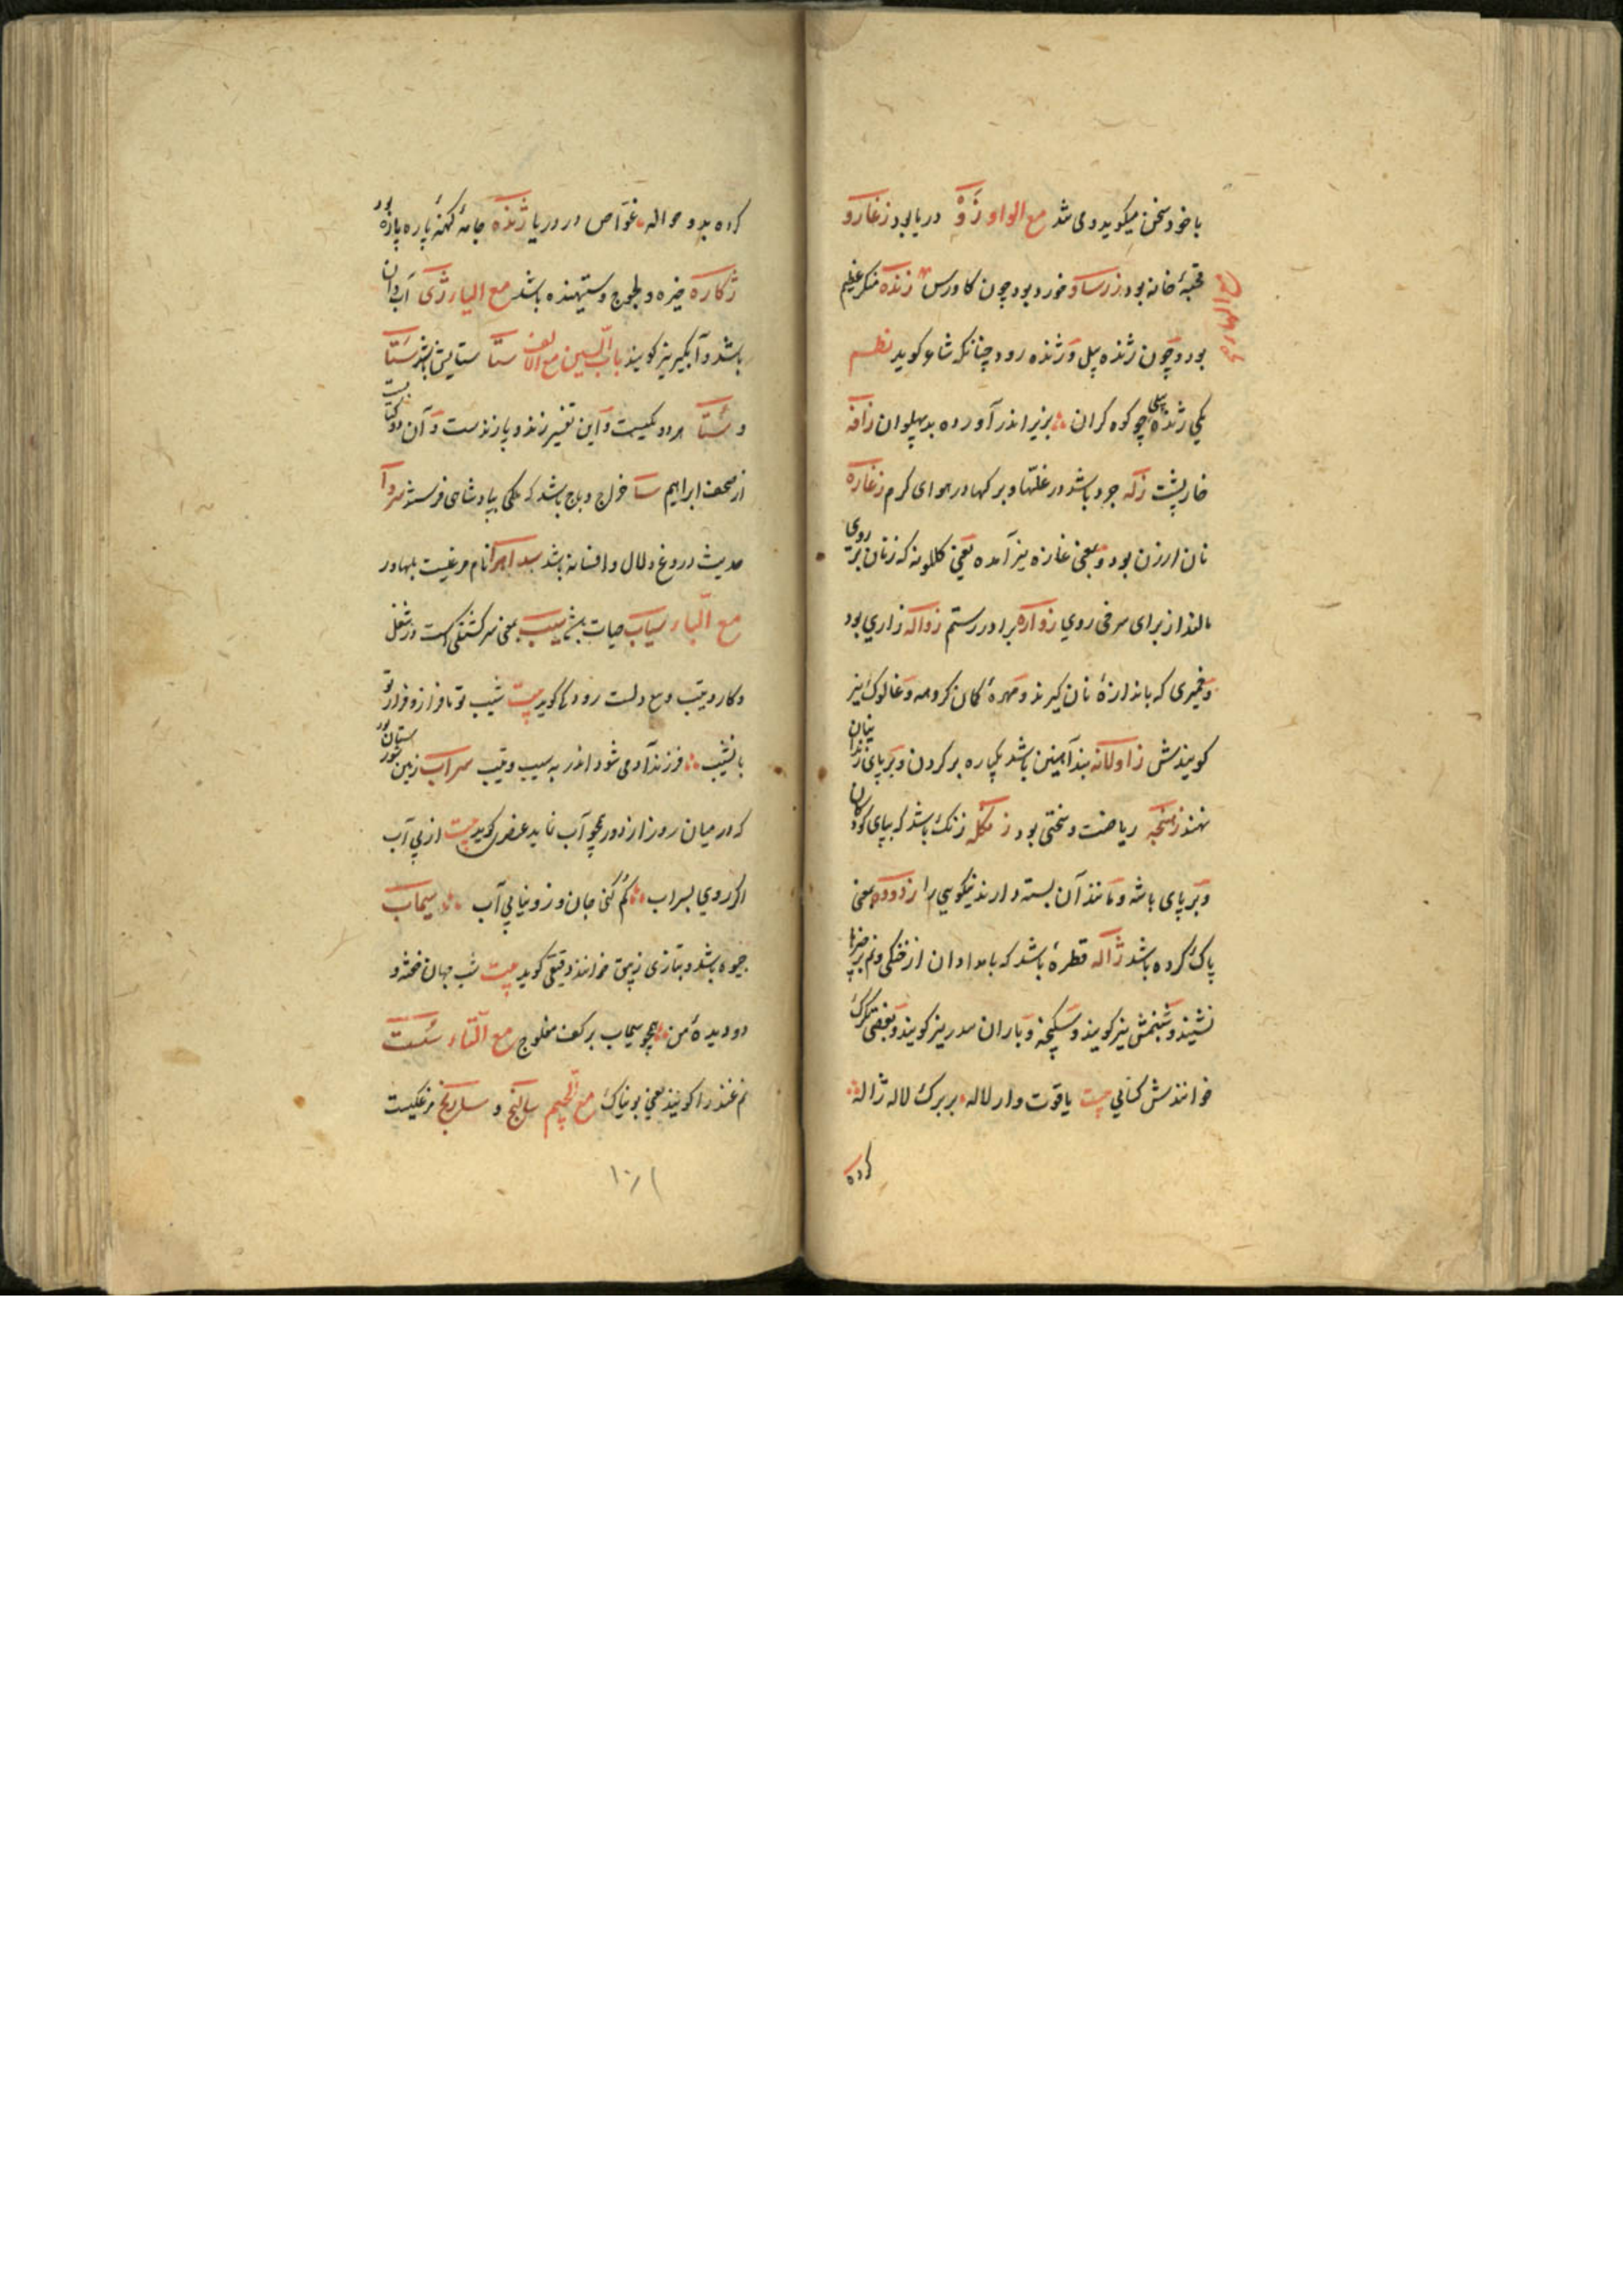 با خود سخن میکوید و می شد مع الواو ژَوْ دریا بود زغارو
قحبهٔ خانه بود زرساو خورد بود چون کاورس زنده منکر عظیم
مع الهاء
بود و چون ژنده پیل و ژنده رود چنانکه شاعر کوید نظم
یکی ژنده پیلی چو کوه کران بزیر اندر آورده بد پهلوان زافه
خارپشت زله جرد باشد در غلتها و برکها در هوای کرم زغاره
نان ارزن بود و بمعنی غازه نیز آمده یعنی کلکونه که زنان بر روی
مالند از برای سرخی روی زواره برادر رستم زواله زاری بود
و خمیری که باندازهٔ نان کیرند و مهرهٔ کمان کروهه و غالوک نیز
کویندش زاولانه بند آهنین باشد یکپاره بر کردن و بر پای زندانیان
نهند زنجه ریاضت و سختی بود زنکله زنک باشد که بپای کودکان
و بر پای باشه و مانند آن بسته دارند نیکویی را زدوده بمعنی
پاک کرده باشد ژاله قطرهٔ باشد که بامدادان از خنکی و نم بر
نشیند و شبنمش نیز کویند و سکنجه و باران سدر نیز کویند و بعضی تکرک
خوانندش کسائی بیت یاقوت وار لاله بر برک لاله ژاله
کرده
کرده بدو حواله غوّاص در دریا ژنده جامهٔ کهنهٔ پاره پاره بود
ژکاره خیره و لجوج و ستیهنده باشد مع الیا ژی آب دان
باشد و آبگیر نیز کویند باب السین مع الالف ستا ستایش باشد سَتا
و سُتا هر دو یکیست و این تفسیر زند و پازندست و آن دو کتابیست
از صحف ابراهیم سا خراج و باج باشد که ملکی بپادشاهی فرستد سروا
حدیث دروغ و لال و افسانه باشد نام مرغیست بهادر
مع الباء سیاب حیات باشد سیب بمعنی سرکشتکی است و از شغل
و کار و تیب مع دلست رودکی کوید بیت شیب تو با فراز و فراز تو
با نشیب فرزند آدمی شود اندر به سیب و تیب سراب زمین شورستان بود
که در میان روز از دور همچو آب نماید عنصری کوید بیت از پی آب
اکر روی بسراب کم کنی جان و زو نیابی آب سیماب
جیوه باشد و بتازی زیبق خوانند دقیقی کوید بیت شب جهان خفته و
دو دیدهٔ من همچو سیماب بر کف مفلوج مع التاء سُست
نم غند را کویند یعنی بوناک مع الجیم سالنج و ساریج مرغکیست